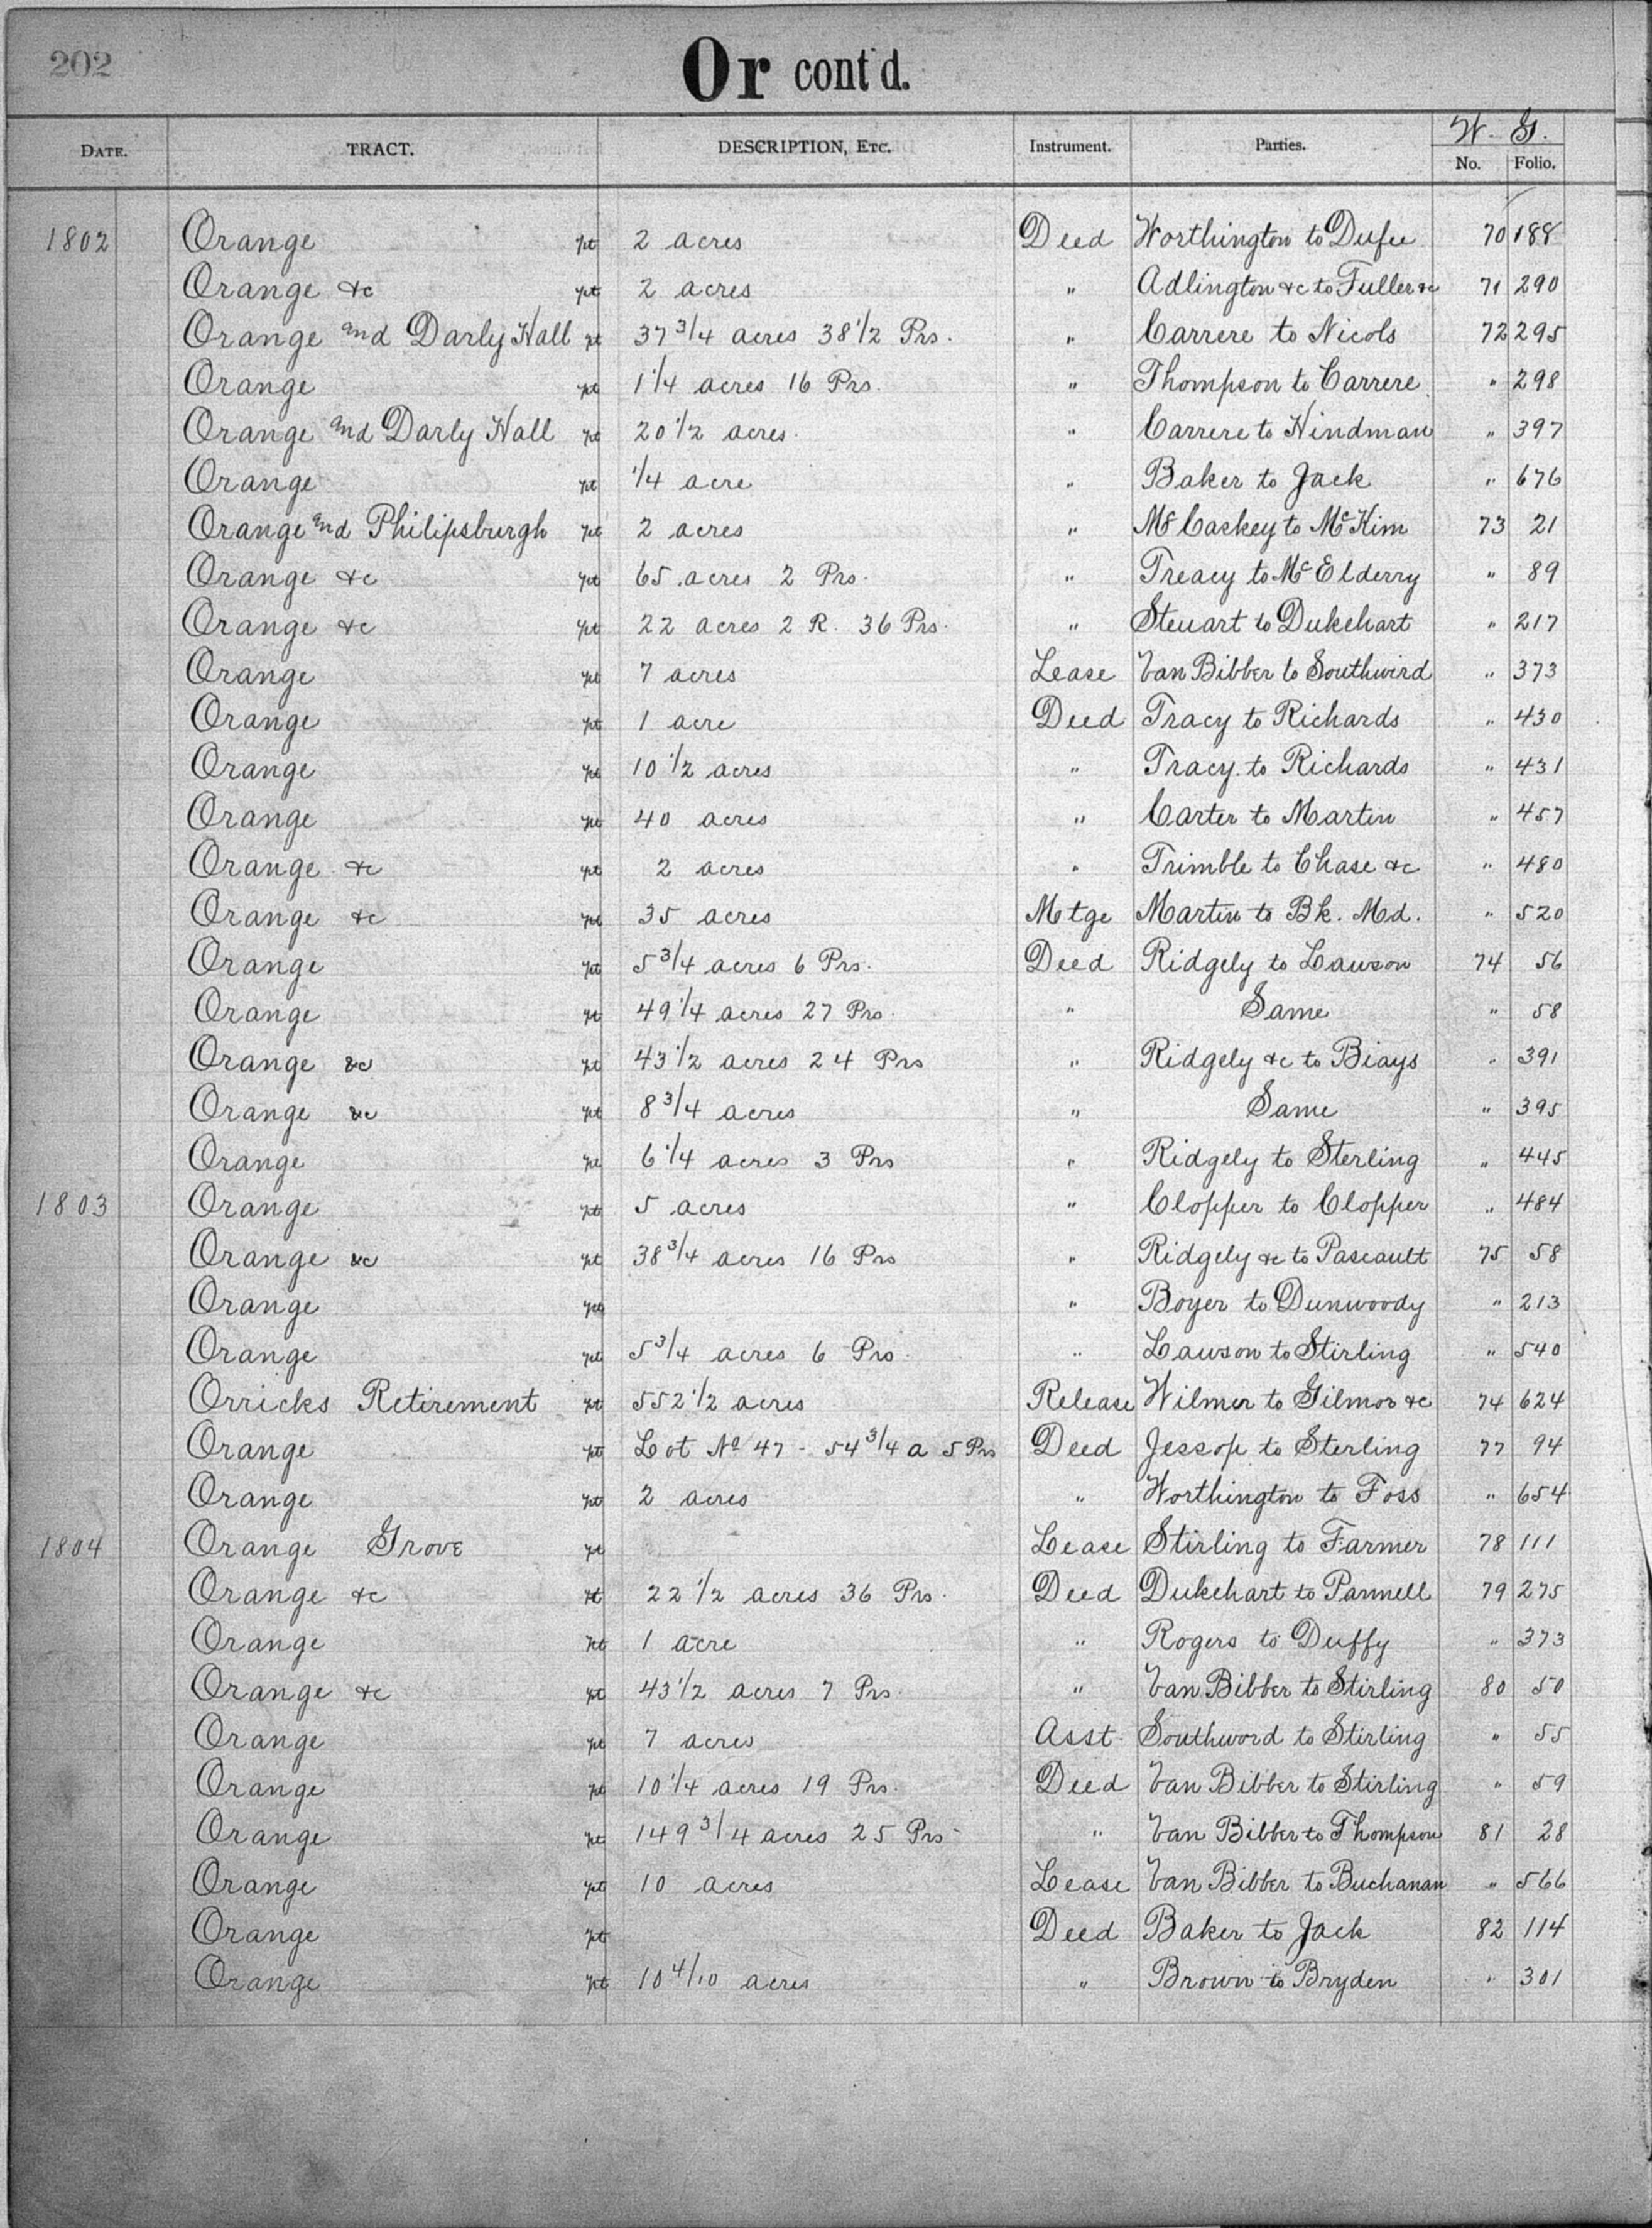 202
Or cont'd.
W. G.
DATE. TRACT. DESCRIPTION, ETC. Instrument. Parties. No. Folio.
1802 Orange pt 2 acres Deed Worthington to Dufee 70 188
Orange &c pt 2 acres " Adlington &c to Fuller &c 71 290
Orange and Darly Hall pt 37 3/4 acres 38 1/2 Prs. " Carrere to Nicols 72 295
Orange pt 1 1/4 acres 16 Prs. " Thompson to Carrere " 298
Orange and Darly Hall pt 20 1/2 acres. " Carrere to Hindman " 397
Orange pt 1/4 acre " Baker to Jack " 676
Orange and Philipsburgh pt 2 acres " McCaskey to McKim 73 21
Orange &c pt 65 acres 2 Prs. " Treacy to McElderry " 89
Orange &c pt 22 acres 2 R. 36 Prs. " Steuart to Dukehart " 217
Orange pt 7 acres Lease Van Bibber to Southwird " 373
Orange pt 1 acre Deed Tracy to Richards " 430
Orange pt 10 1/2 acres " Tracy to Richards " 431
Orange pt 40 acres " Carter to Martin " 457
Orange &c pt 2 acres " Trimble to Chase &c " 480
Orange &c pt 35 acres Mtge Martin to Bk. Md. " 520
Orange pt 5 3/4 acres 6 Prs. Deed Ridgely to Lawson 74 56
Orange pt 49 1/4 acres 27 Prs. " Same " 58
Orange &c pt 43 1/2 acres 24 Prs " Ridgely &c to Biays " 391
Orange &c pt 8 3/4 acres " Same " 395
Orange pt 6 1/4 acres 3 Prs " Ridgely to Sterling " 445
1803 Orange pt 5 acres " Clopper to Clopper " 484
Orange &c pt 38 3/4 acres 16 Prs " Ridgely &c to Pascault 75 58
Orange pt " Boyer to Dunwoody " 213
Orange pt 5 3/4 acres 6 Prs. " Lawson to Stirling " 540
Orricks Retirement pt 552 1/2 acres Release Wilmer to Gilmor &c 74 624
Orange pt Lot No 47 - 54 3/4 a 5 Prs Deed Jessop to Sterling 77 94
Orange pt 2 acres " Worthington to Foss " 654
1804 Orange Grove pt Lease Stirling to Farmer 78 111
Orange &c pt 22 1/2 acres 36 Prs. Deed Dukehart to Pannell 79 275
Orange pt 1 acre " Rogers to Duffy " 373
Orange &c pt 43 1/2 acres 7 Prs. " Van Bibber to Stirling 80 50
Orange pt 7 acres Asst. Southword to Stirling " 55
Orange pt 10 1/4 acres 19 Prs. Deed Van Bibber to Stirling " 59
Orange pt 149 3/4 acres 25 Prs. " Van Bibber to Thompson 81 28
Orange pt 10 acres Lease Van Bibber to Buchanan " 566
Orange pt Deed Baker to Jack 82 114
Orange pt 10 4/10 acres " Brown to Bryden " 301